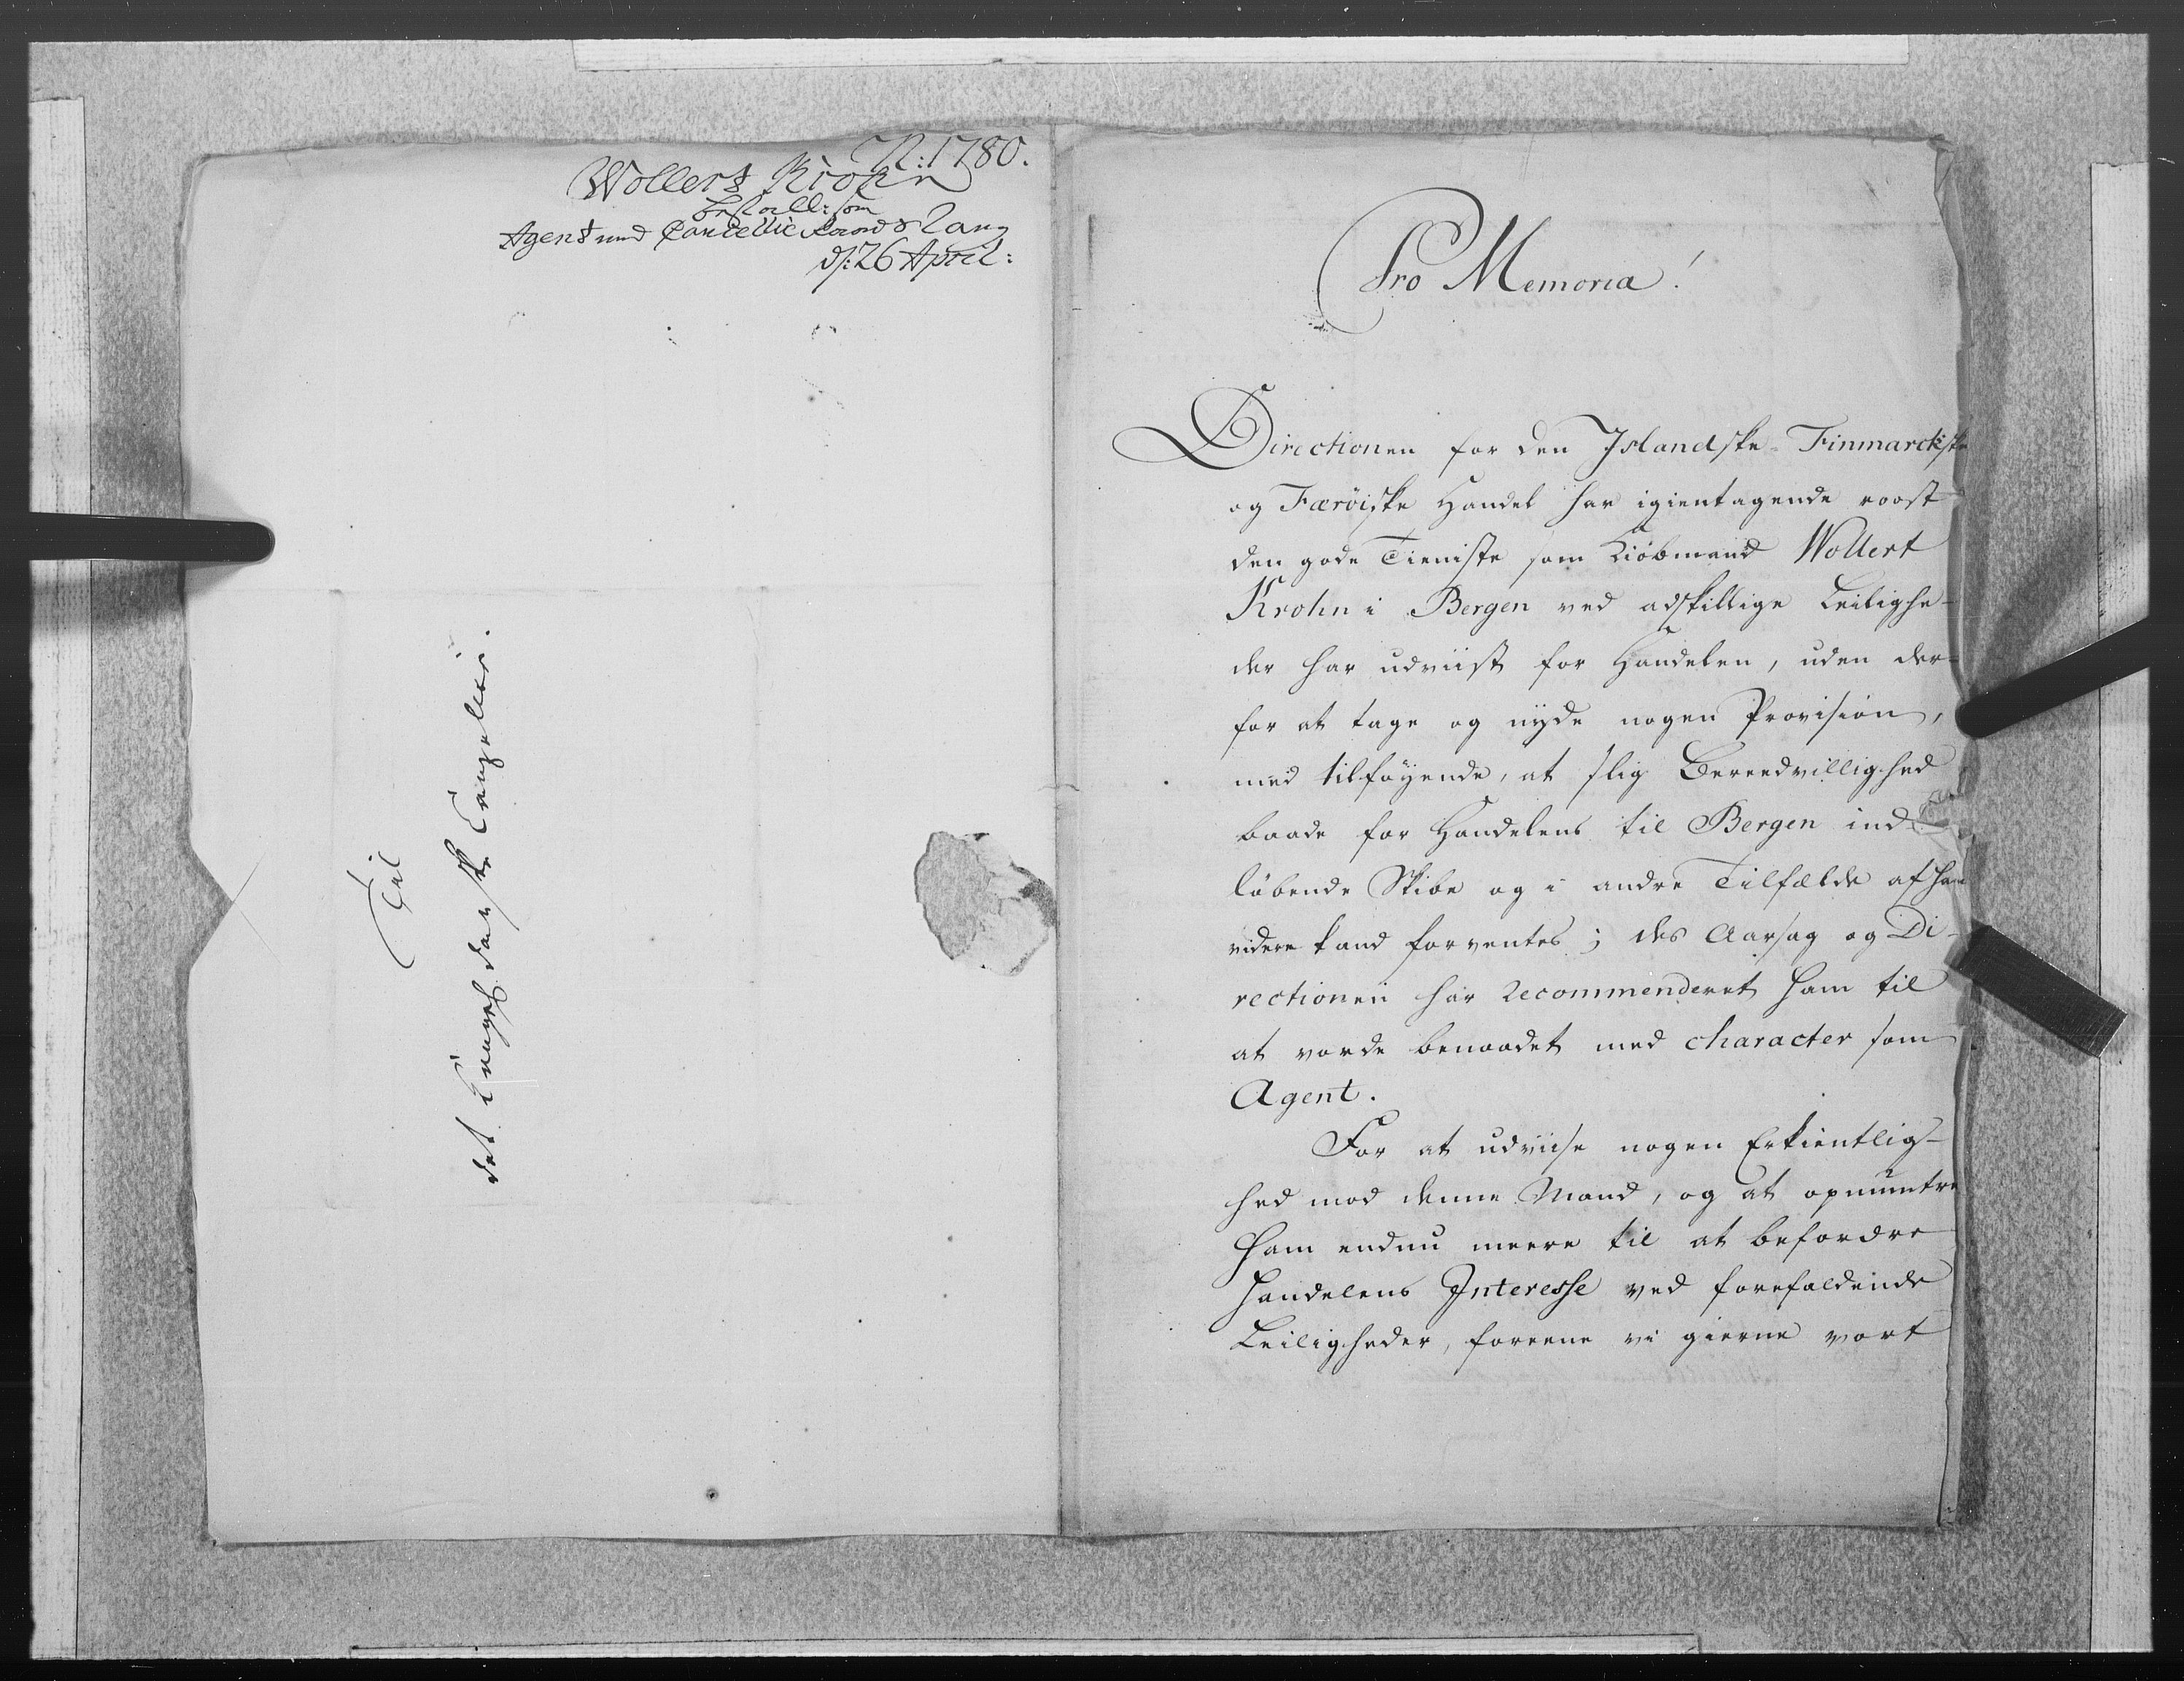 N: 1780.
Wollert Krohn
bestall: som
Agent med Cancellie Raads Rang
d: 26 April:
Til
det Kongel. danske Cancellie.
Pro Memoria!
Directionen for den Islandske Finmarckske
og Færöiske Handel har igientagende roost
den gode Tieniste som Kiöbmand Wollert
Krohn i Bergen ved adskillige Leilighe-
der har udviist for Handelen, uden der-
for at tage og nyde nogen Provision,
med tilföyende, at slig Bereedvillighed
baade for Handelens til Bergen ind-
löbende Skibe og i andre Tilfælde af ham
videre kand forventes; des Aarsag og Di-
rectionen har recommenderet ham til
at vorde benaadet med character som
Agent.
For at udviise nogen Erkientlig-
hed mod denne Mand, og at opmuntre
ham endnu meere til at befordre
Handelens Interesse ved forefaldende
Leiligheder, foreene vi gierne vort